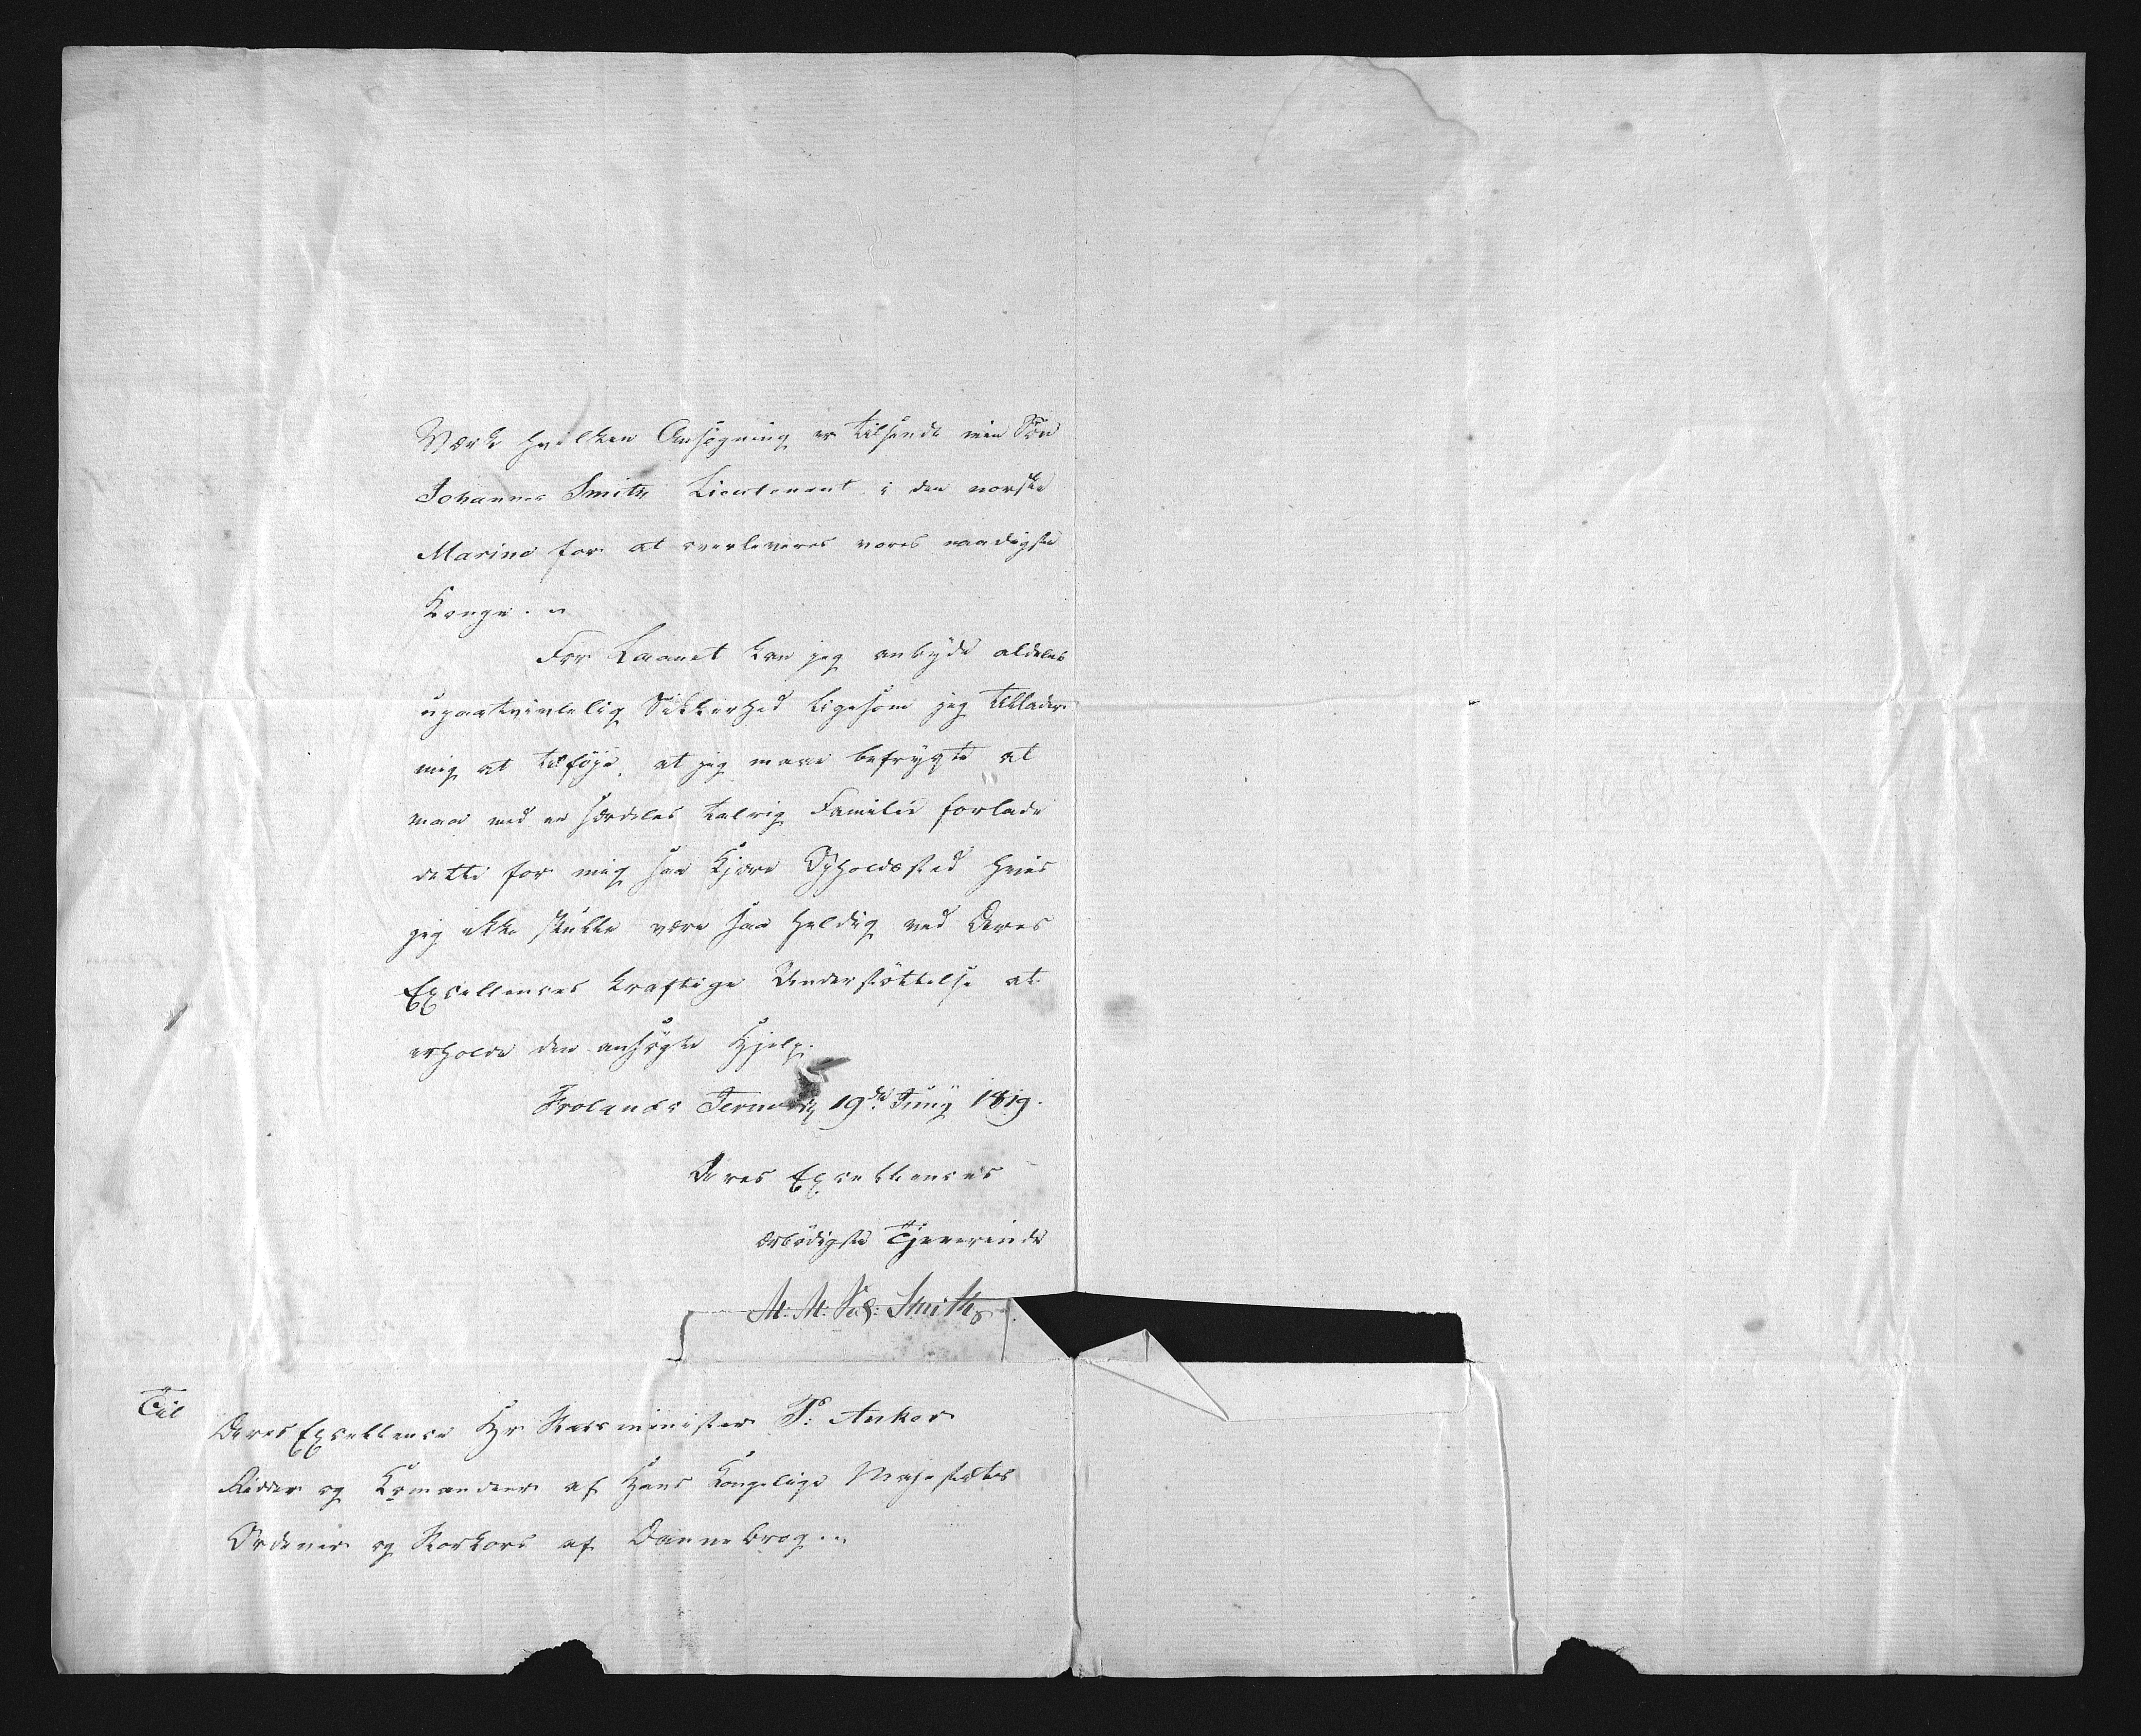 Værk hvilken Ansøgning er tilsendt min Søn
Johannes Smith Lieutenant i den norske
Marine for at overleveres vores naadigste
Konge.
For Laanet kan jeg anbyde aldeles
upaatvivlelig Sikkerhed ligesom jeg tillader
mig at tilføje, at jeg maae befrygte at
maae med en særdeles talrig Familie forlade
dette for mig saa kjære Opholdssted hvis
jeg ikke skulle være saa heldig ved Deres
Excellences kraftige Understöttelse at
erholde den ansøgte Hjelp.
Frolands Jernverk 19de Juny 1819.
Deres Excellences
ærbødigste Tjenerinde
M: M: Sal: Smith
Til
Deres Excellence Hr Statsminister P: Anker
Ridder og Komandeur af Hans Kongelige Majestæts
Ordener og Storkors af Dannebrog